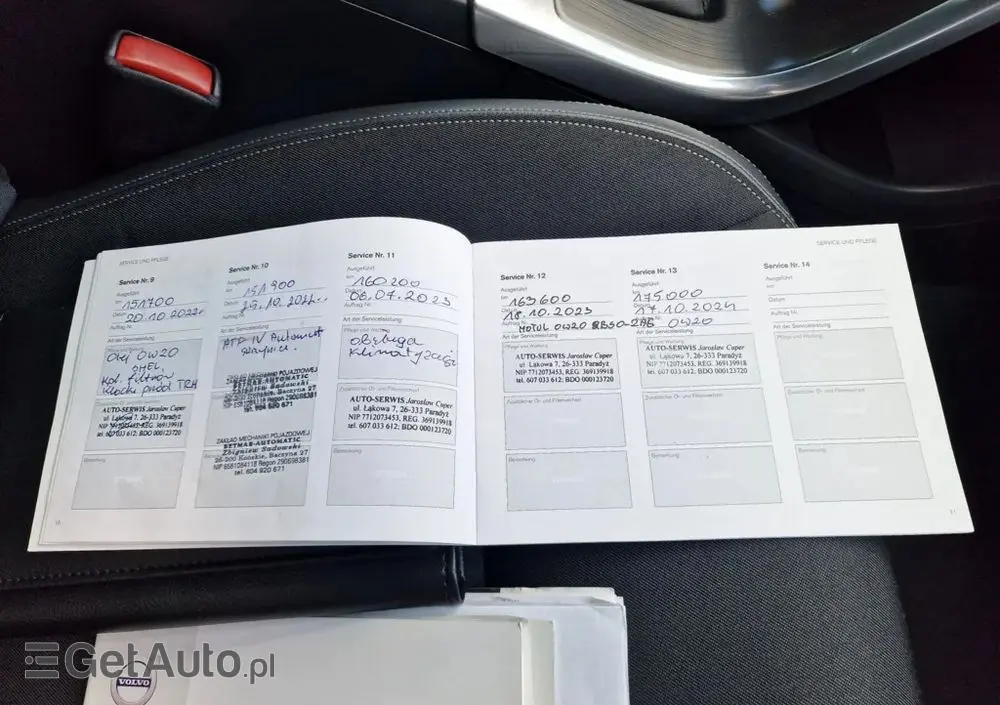 SERVICE UND PFLEGE
Service Nr. 9
Ausgeführt
km 151700
Datum 20.10.2022
Auftrag Nr.
Art der Serviceleistung
Olej 0W20
SHEL.
Kpl. Filtrów
Klocki przód TRH
AUTO-SERWIS Jarosław Caper
ul. Łąkowa 7, 26-333 Paradyż
NIP 7712073453, REG. 369139918
tel. 607 033 612; BDO 000123720
Bemerkung
Service Nr. 10
Ausgeführt
km 151900
Datum 10.2022
Auftrag Nr.
Art der Serviceleistung
ATF IV Automat
skrzynia.
ZAKŁAD MECHANIKI POJAZDOWEJ
BETMAR-AUTOMATIC
Zbigniew Sadowski
26-200 Końskie, Barzyna 27
Regon 290698381
tel. 604 920 671
ZAKŁAD MECHANIKI POJAZDOWEJ
BETMAR-AUTOMATIC
Zbigniew Sadowski
26-200 Końskie, Barzyna 27
NIP 6581084118 Regon 290698381
tel. 604 920 671
Service Nr. 11
Ausgeführt
km 160200
Datum 06.07.2023
Auftrag Nr.
Art der Serviceleistung
Pflege und Wartung
obsługa
Klimatyzacji
Zusätzlicher Öl- und Filterwechsel
AUTO-SERWIS Jarosław Caper
ul. Łąkowa 7, 26-333 Paradyż
NIP 7712073453, REG. 369139918
tel. 607 033 612; BDO 000123720
Bemerkung
SERVICE UND PFLEGE
Service Nr. 12
Ausgeführt
km 163600
Datum 18.10.2023
Auftrag Nr. MOTUL 0W20 RBS0-2AE
Art der Serviceleistung
Pflege und Wartung
AUTO-SERWIS Jarosław Caper
ul. Łąkowa 7, 26-333 Paradyż
NIP 7712073453, REG. 369139918
tel. 607 033 612; BDO 000123720
Zusätzlicher Öl- und Filterwechsel
Bemerkung
Service Nr. 13
Ausgeführt
km 175000
Datum 17.10.2024
Auftrag Nr. 0W20
Art der Serviceleistung
Pflege und Wartung
AUTO-SERWIS Jarosław Caper
ul. Łąkowa 7, 26-333 Paradyż
NIP 7712073453, REG. 369139918
tel. 607 033 612; BDO 000123720
Zusätzlicher Öl- und Filterwechsel
Bemerkung
Service Nr. 14
Ausgeführt
km
Datum
Auftrag Nr.
Art der Serviceleistung
Pflege und Wartung
Zusätzlicher Öl- und Filterwechsel
Bemerkung
VOLVO
GetAuto.pl